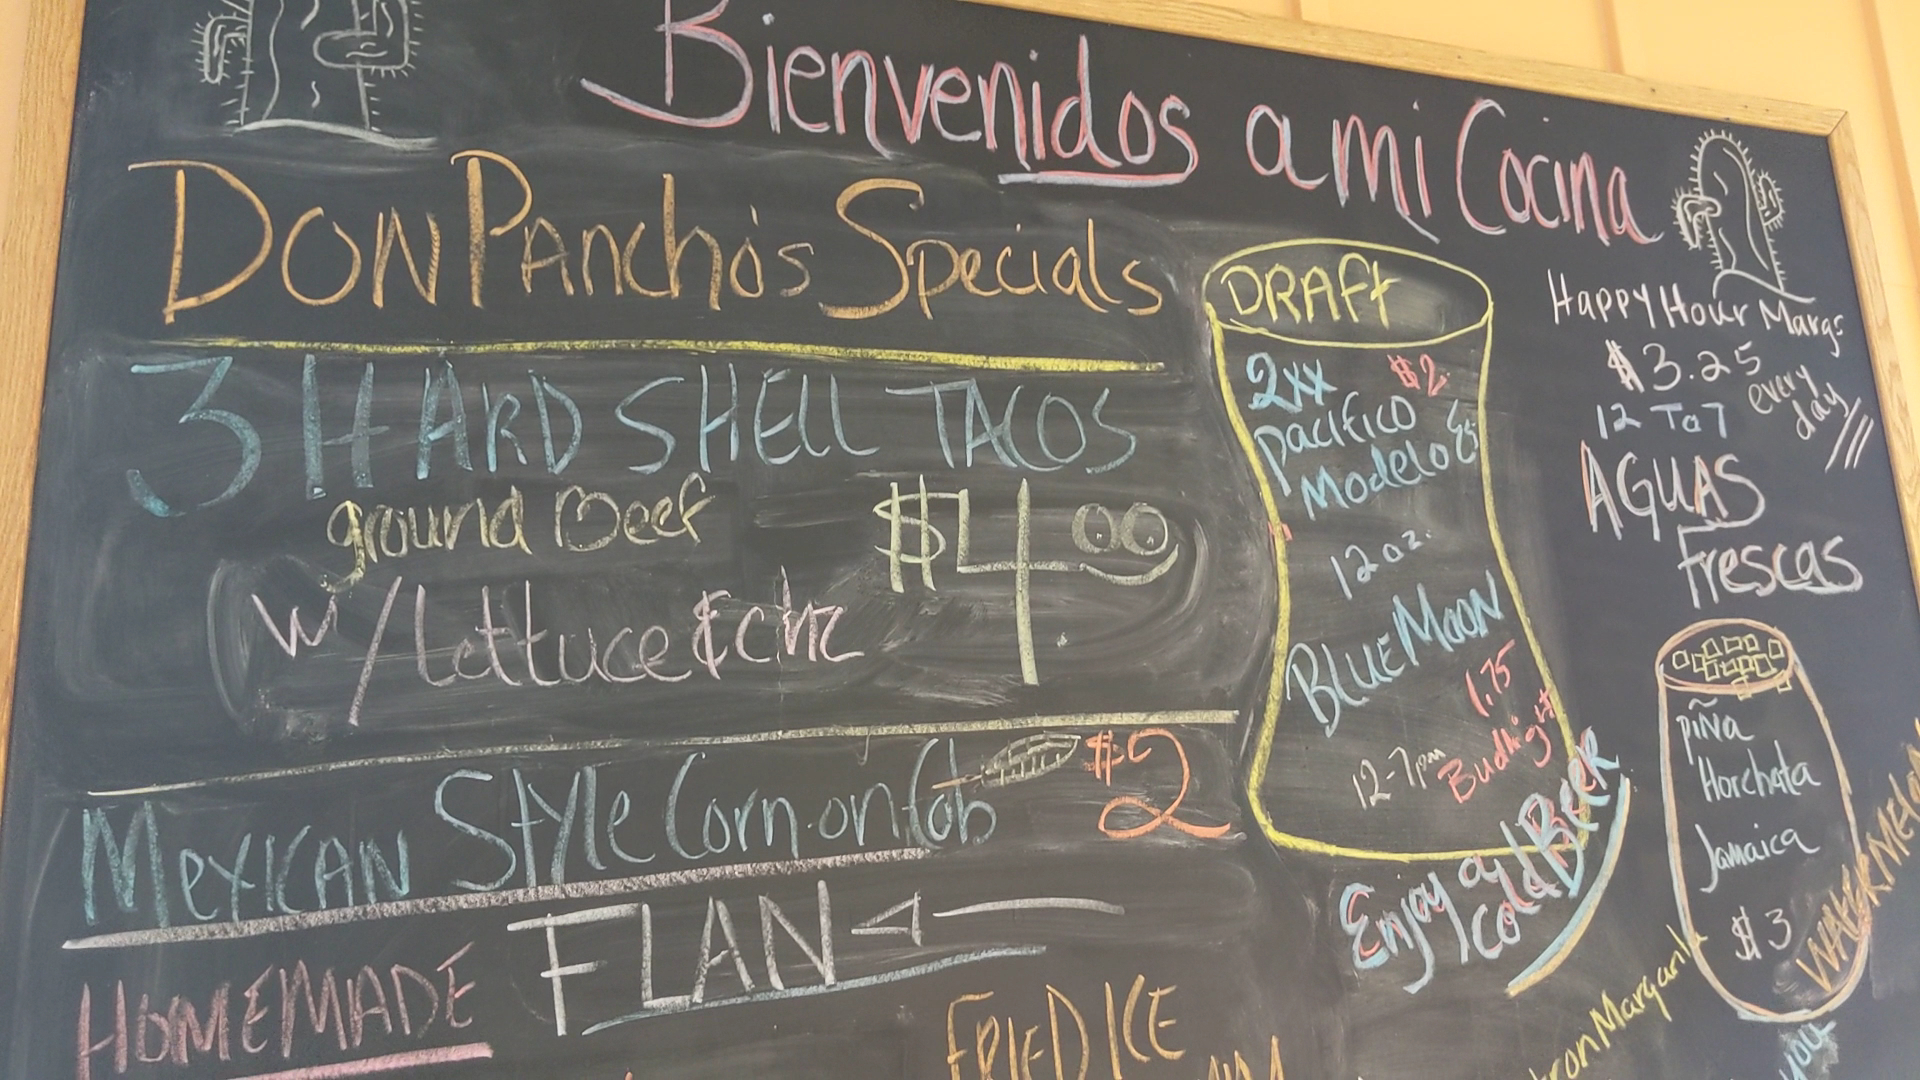 Bienvenidos a mi Cocina
DON Pancho's Specials
3 HARD SHELL TACOS
ground Beef $4.00
w/ lettuce & chz
Mexican Style Corn on Cob $2
HOMEMADE FLAN
FRIED ICE
DRAFt
2xx $2
pacifico
Modelo Es
12 oz.
BLUE MOON
1.75
12-7pm Budligh
Enjoy a
Cold BEER
Happy Hour Margs
$3.25
12 To 7 every day
AGUAS
Frescas
piña
Horchata
Jamaica
$3
WATERMELON
tron Margarita
you